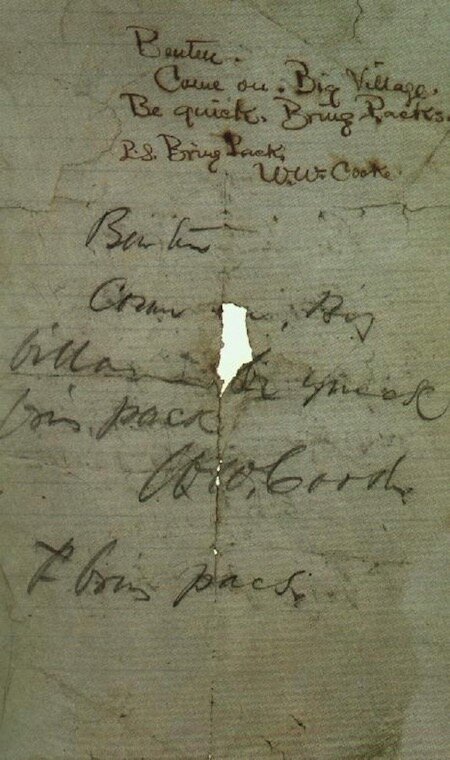 Benteen.
Come on. Big Village.
Be quick. Bring Packs.
P.S. Bring Pack.
W. W. Cooke
Benteen
Come on. Big
Village be quick
bring packs
W.W. Cooke
P bring pacs.